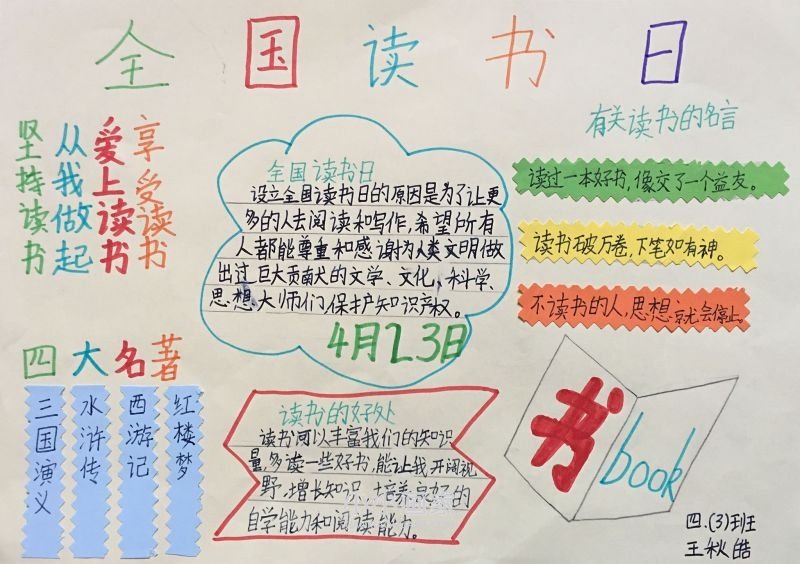 全国读书日
坚持读书
从我做起
爱上读书
享受读书
全国读书日
设立全国读书日的原因是为了让更
多的人去阅读和写作,希望所有
人都能尊重和感谢为人类文明做
出过巨大贡献的文学、文化、科学、
思想大师们,保护知识产权。
4月23日
有关读书的名言
读过一本好书,像交了一个益友。
读书破万卷,下笔如有神。
不读书的人,思想就会停止。
四大名著
三国演义
水浒传
西游记
红楼梦
读书的好处
读书可以丰富我们的知识
量,多读一些好书,能让我开阔视
野,增长知识,培养良好的
自学能力和阅读能力。
书
book
四.(3)班
王秋皓